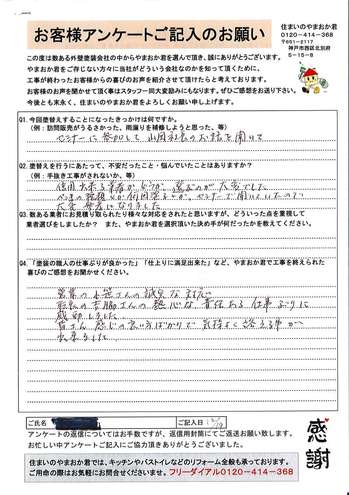 お客様アンケートご記入のお願い
住まいのやまおか君
0120-414-368
〒651-2117
神戸市西区北別府
5-15-8
この度は数ある外壁塗装会社の中からやまおか君を選んで頂き、誠にありがとうございます。
やまおか君をご存じない方々に当社がどういう会社なのかを知って頂くために、
工事が終わったお客様からの喜びのお声を紹介させて頂けたらと考えております。
お客様のお声を聞かせて頂く事はスタッフ一同大変励みにもなります。ぜひご感想をお送り下さい。
今後とも末永く、やまおか君をよろしくお願い申し上げます。
Q1. 今回塗替えすることになったきっかけは何ですか。
(例：訪問販売がうるさかった、雨漏りを補修しようと思った、等)
セミナーに参加して山岡社長のお話を聞いて
Q2. 塗替えを行うにあたって、不安だったこと・悩んでいたことはありますか？
(例：手抜き工事がされないか、等)
信用出来る業者かどうか、選ぶのが大変でした
セミナーで聞いていたので
大変参考になりました
Q3. 数ある業者にお見積り取られたり様々な対応をされたと思いますが、どういった点を重視して
業者選びをしましたか？ また、やまおか君を選択頂いた決め手が何だったかを教えてください。
Q4. 「塗装の職人の仕事ぶりが良かった」「仕上りに満足出来た」など、やまおか君で工事を終えられた
喜びのご感想をお聞かせください。
営業の小笹さんの誠実な対応
さんの熱心な責任ある仕事ぶりに
感動しました
皆さん感じの良い方ばかりで気持よく終える事が
出来ました
ご氏名
ご記入日
アンケートの返信についてはお手数ですが、返信用封筒にてご返送お願い致します。
お忙しい中アンケートご記入にご協力頂きありがとうございました。
感謝
住まいのやまおか君では、キッチンやバストイレなどのリフォーム全般も承っております。
ご用命の際はお気軽にお問合せくださいませ。フリーダイアル0120-414-368